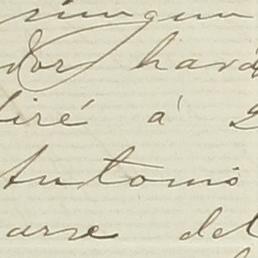 ningun
dor hará
firé á
Antonio
arse del